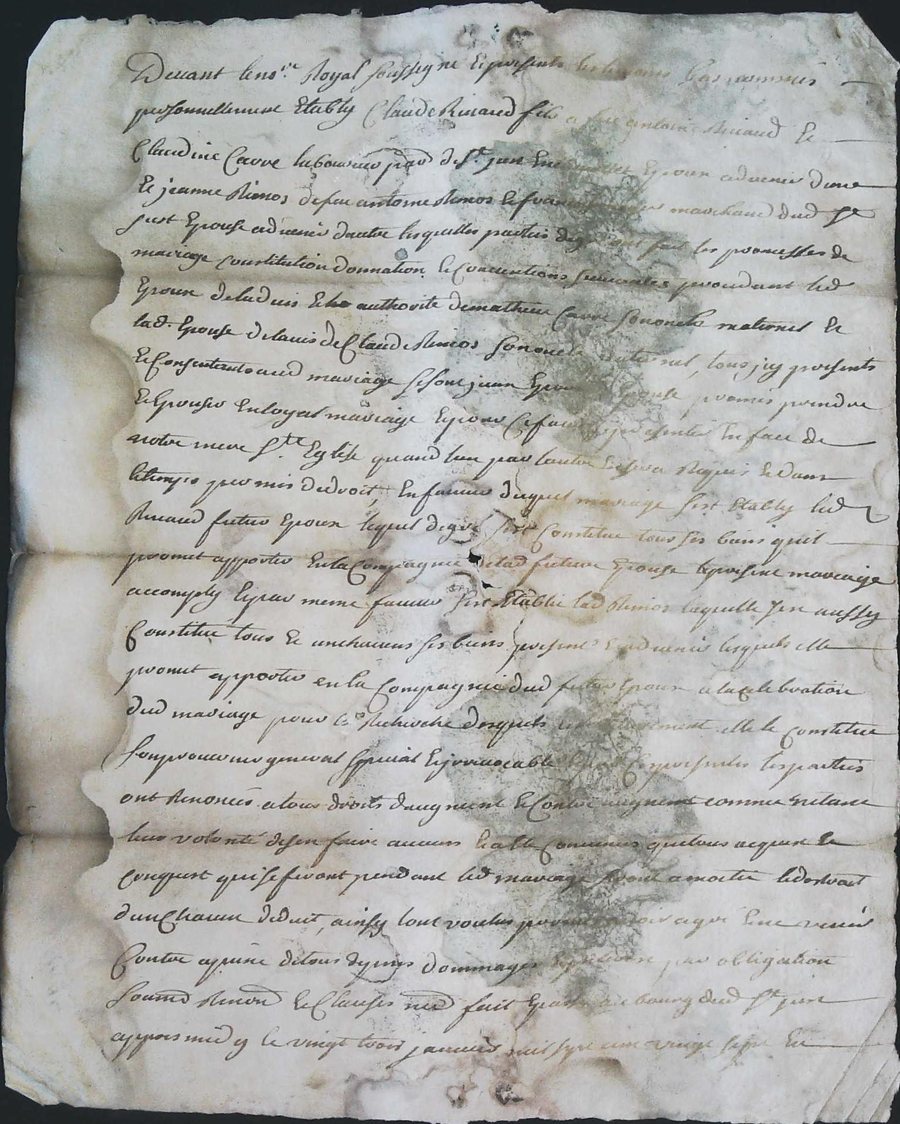 Devant le no.re Royal soussigne et presents les temoins bas nommés
personnellement Etably Claude Rinaud fils a feu antoine Rinaud et
Claudine Carre laboureur par de St. just Epoux advenir dune
Et jeanne Rimos defeu antoine Rimos et marchand dud St
just Epouse advenir dautre lesquelles parties de gre ont fait les promesses de
mariage constitution donnation et Conventions suivantes procedant led
Epoux de ladvis Et authorité de mathieu Carre son oncle maternel Et
lad. Epouse de lavis de Claude Rimos son oncle paternel, tous jcy presents
et Consentants aud mariage se sont promis prendre
et Epouser En loyal mariage Et pour Ce faire se presenter En face de
notre mere Ste. Eglise quand lun par lautre En sera Requis Et dans
le temps permis de droit, En faveur duquel mariage sest Etably led
Rinaud futur Epoux lequel de gre sest Constitue tous ses biens quil
promet apporter En la Compagnie de lad future Epouse le present mariage
accomply Et par meme faveur sest Etablie lad Rimos laquelle sen aussy
Constitue tous et uns chacuns ses biens presents Et advenir lesquels elle
promet apporter en la Compagnie dud futur Epoux a la celebration
dud mariage pour la Recherche desquels elle le Constitue
son procureur general special Et jrrevocable les parties
ont Renoncés a tous droits daugment et Contre augment comme netant
leur volonté den faire aucuns Et a Esté Convenu que tous acquest Et
Conquest qui se feront pendant led mariage seront a moitie led
dun Chacun deduit, ainsy lont voulus
Contre a peine de tous depens dommages par obligation
soumd Renond Et Clauses necd fait Et passé au bourg dud St just
appres midy le vingt trois janvier mil sept cent vingt sept En